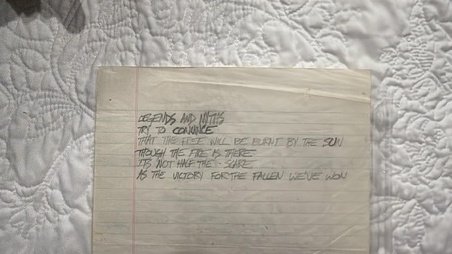 LEGENDS AND MYTHS
TRY TO CONVINCE
THAT THE FREE WILL BE BURNT BY THE SUN
THOUGH THE FIRE IS THERE
IT'S NOT HALF THE SCARE
AS THE VICTORY FOR THE FALLEN WE'VE WON